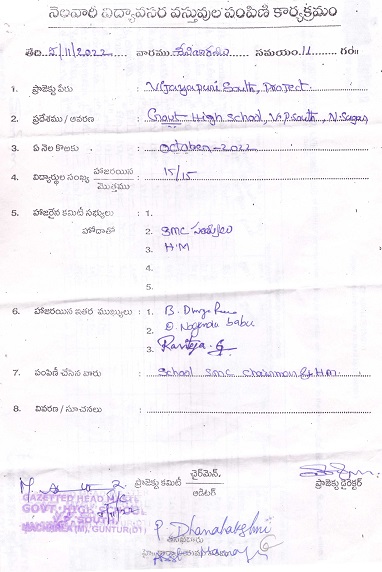 నెలవారీ విద్యావసర వస్తువుల పంపిణీ కార్యక్రమం
తేది. 5/11/2022 వారము శనివారము సమయం. 11 గం॥
1. ప్రాజెక్టు పేరు : Vijayapuri South, Project.
2. ప్రదేశము / ఆవరణ : Govt High School, V.P. South, N. Sagar
3. ఏ నెల కొఱకు : October-2022
4. విద్యార్థుల సంఖ్య హాజరయిన / మొత్తము : 15/15
5. హాజరైన కమిటీ సభ్యులు : 1.
హోదాతో 2. SMC సభ్యులు
3. H.M
4.
5.
6. హాజరయిన ఇతర ముఖ్యులు : 1. B. Durga Rao
2. D. Nagendra babu
3. Raviteja
7. పంపిణీ చేసిన వారు : School SMC Chairman & H.M.
8. వివరణ / సూచనలు :
ప్రాజెక్టు కమిటీ ఛైర్మెన్, / ఆడిటర్
ప్రాజెక్టు డైరెక్టర్
GAZETTED HEAD M
GOVT. HIGH S
V.P. SOUTH
(M), GUNTUR(Dt)
P. Dhanalakshmi